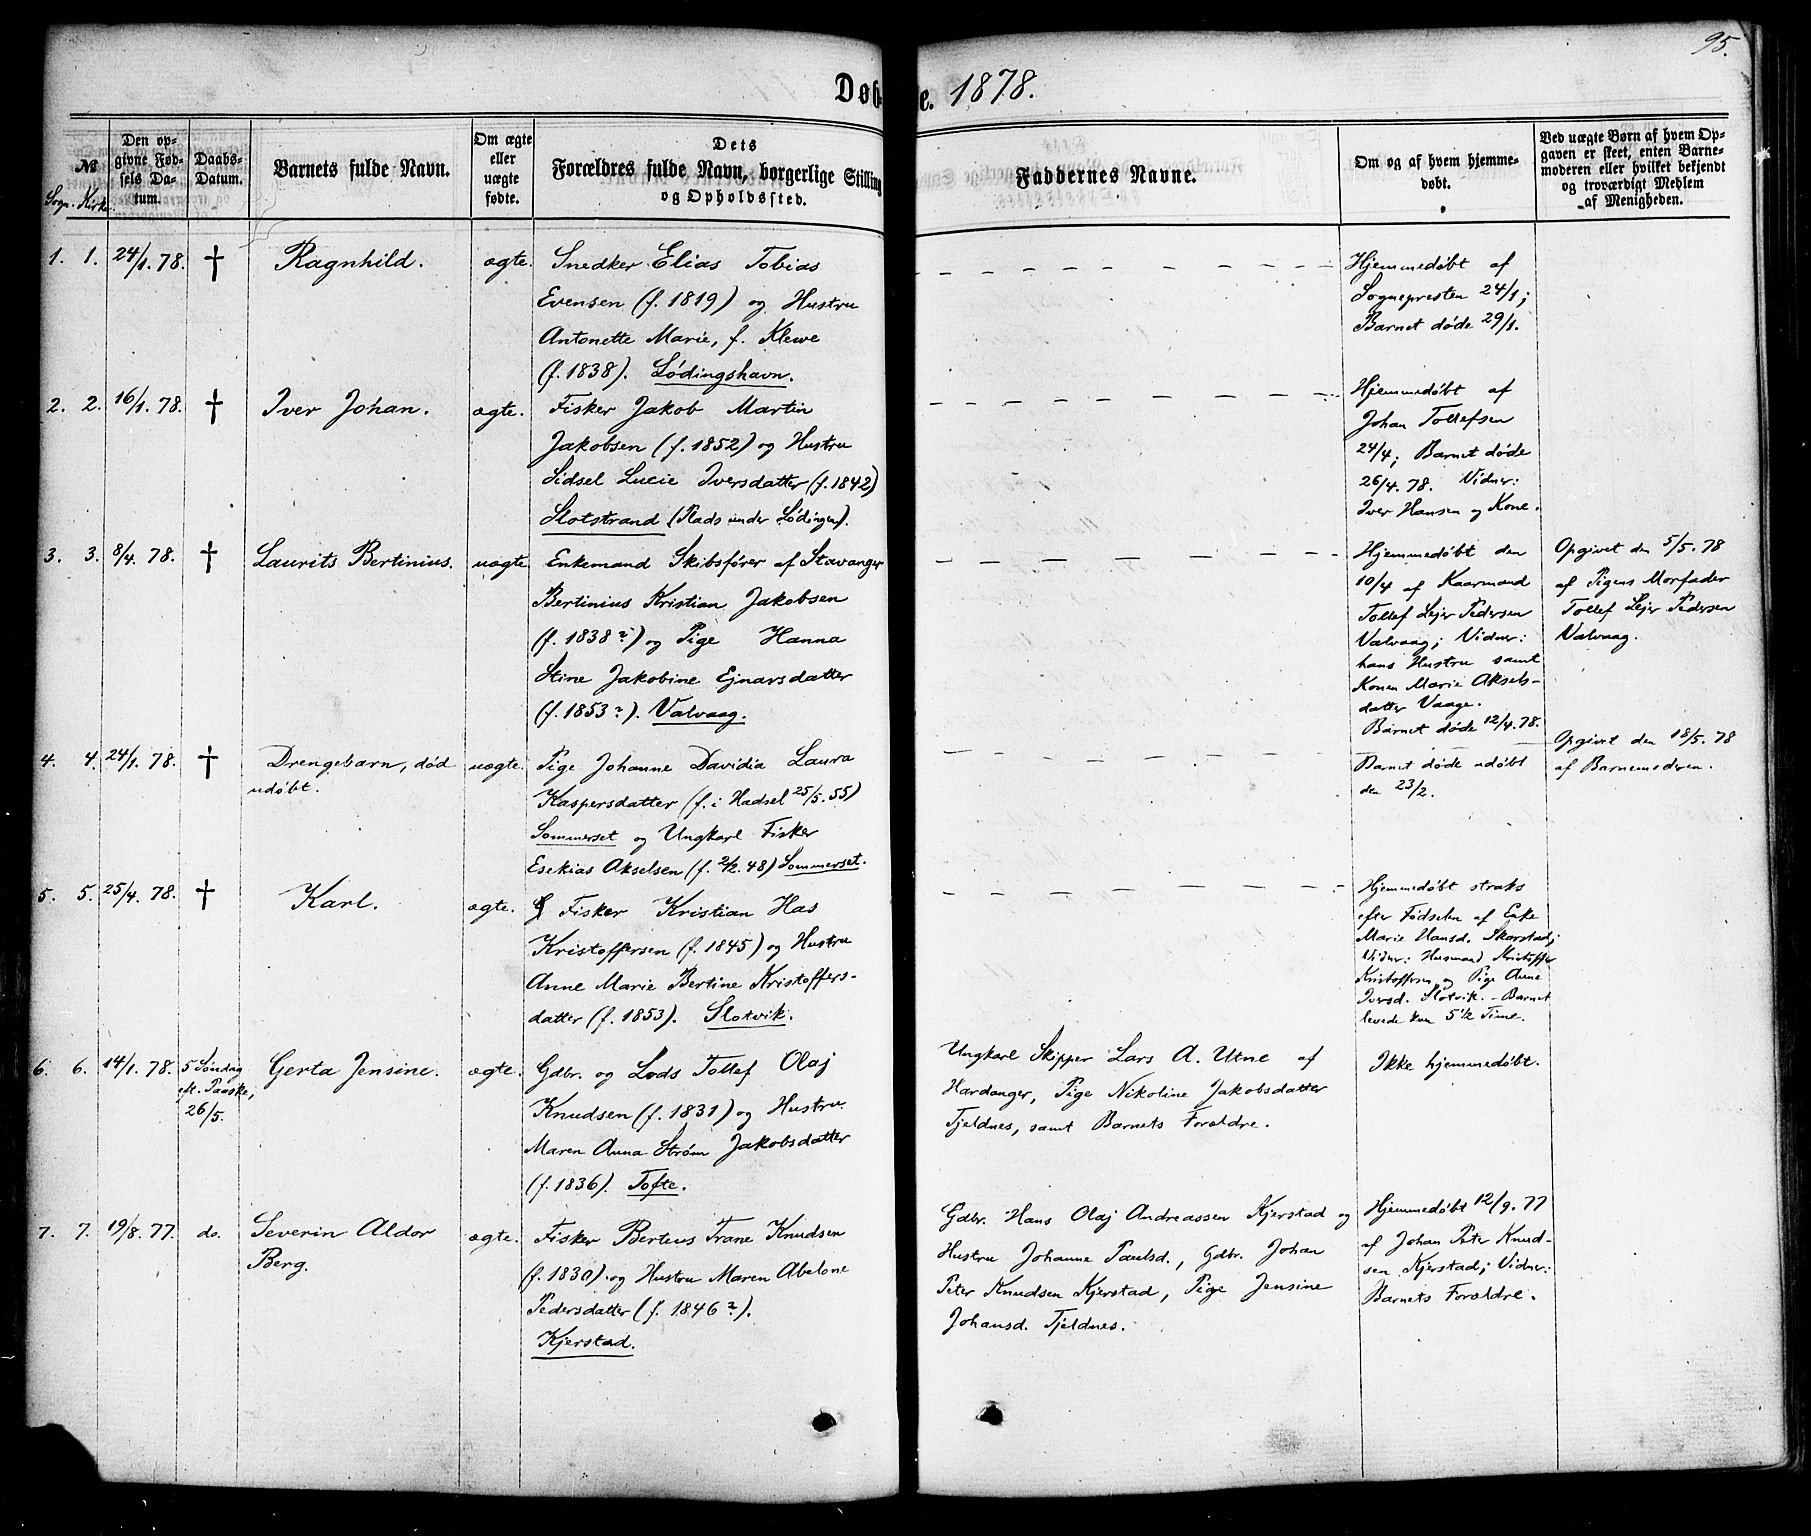 95.
Døb
e. 1878.
№
Sogn. Kirke.
Den op-
givne Fød-
sels Da-
tum.
Daabs-
Datum.
Barnets fulde Navn.
Om ægte
eller
uægte
fødte.
Dets
Forældres fulde Navn, borgerlige Stilling
og Opholdssted.
Faddernes Navne.
Om og af hvem hjemme-
døbt.
Ved uægte Børn af hvem Op-
gaven er skeet, enten Barne-
moderen eller hvilket bekjendt
og troværdigt Medlem
af Menigheden.
1. 1. 24/1. 78. † Ragnhild. ægte. Snedker Elias Tobias
Evensen (f. 1819) og Hustru
Antonette Marie, f. Klewe
(f. 1838). Lødingshavn.
Hjemmedøbt af
Sognepresten 24/1;
Barnet døde 29/1.
2. 2. 16/1. 78. † Iver Johan. ægte. Fisker Jakob Martin
Jakobsen (f. 1852) og Hustru
Sidsel Lucie Iversdatter (f. 1842)
Slotstrand (Plads under Lødingen).
Hjemmedøbt af
Johan Tollefsen
24/4; Barnet døde
26/4. 78. Vidner:
Iver Hansen og Kone.
3. 3. 8/4. 78. † Laurits Bertinius. uægte Enkemand Skibsfører af Stavanger
Bertinius Kristian Jakobsen
(f. 1838?) og Pige Hanna
Stine Jakobine Ejnarsdatter
(f. 1853?). Valvaag.
Hjemmedøbt den
10/4 af Kaarmand
Tollef Lejer Pedersen
Valvaag; Vidner:
hans Hustru samt
Konen Marie Aksels-
datter Vaage.
Barnet døde 12/4. 78.
Opgivet den 5/5. 78
af Pigens Morfader
Tollef Lejer Pedersen
Valvaag.
4. 4. 24/1. 78. † Drengebarn, død
udøbt.
uægte. Pige Johanne Davidia Laura
Kaspersdatter (f. i Hadsel 25/5. 55)
Sommerset og Ungkarl Fisker
Esekias Akselsen (f. 2/2. 48) Sommerset.
Barnet døde udøbt
den 23/2.
Opgivet den 18/5. 78
af Barnemoderen.
5. 5. 25/4. 78. † Karl. ægte. Fisker Kristian Has
Kristoffersen (f. 1845) og Hustru
Anne Marie Bertine Kristoffers-
datter (f. 1853). Slotvik.
Hjemmedøbt straks
efter Fødselen af Enke
Marie Hansd. Skarstad;
Vidner: Husmand Kristoffer
Kristoffersen og Pige Anne
Iversd. Slotvik. - Barnet
levede kun 5 1/2 Time.
6. 6. 14/1. 78. 5 Søndag
eft. Paaske,
26/5.
Gerta Jensine. ægte. Gdbr. og Lods Tollef Olaj
Knudsen (f. 1831) og Hustru
Maren Anna Strøm Jakobsdatter
(f. 1836). Tofte.
Ungkarl Skipper Lars A. Utne af
Hardanger, Pige Nikoline Jakobsdatter
Tjeldnes, samt Barnets Forældre.
Ikke hjemmedøbt.
7. 7. 19/8. 77. do. Severin Aldor
Berg.
ægte. Fisker Berteus Trane Knudsen
(f. 1830). og Hustru Maren Abelone
Pedersdatter (f. 1846?).
Kjerstad.
Gdbr. Hans Olaj Andreassen Kjerstad og
Hustru Johanne Paulsd., Gdbr. Johan
Peter Knudsen Kjerstad, Pige Jensine
Johansd. Tjeldnes.
Hjemmedøbt 12/9. 77
af Johan Peter Knud-
sen Kjerstad; Vidner:
Barnets Forældre.